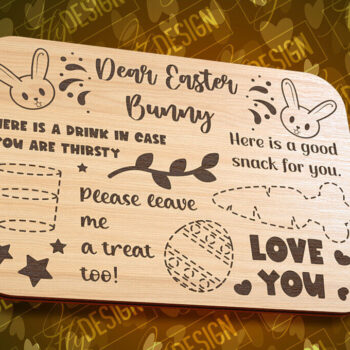 Dear Easter
Bunny
HERE IS A DRINK IN CASE
YOU ARE THIRSTY
Here is a good
snack for you.
Please leave
me
a treat
too!
LOVE
YOU
DESIGN
DESIGN
DESIGN